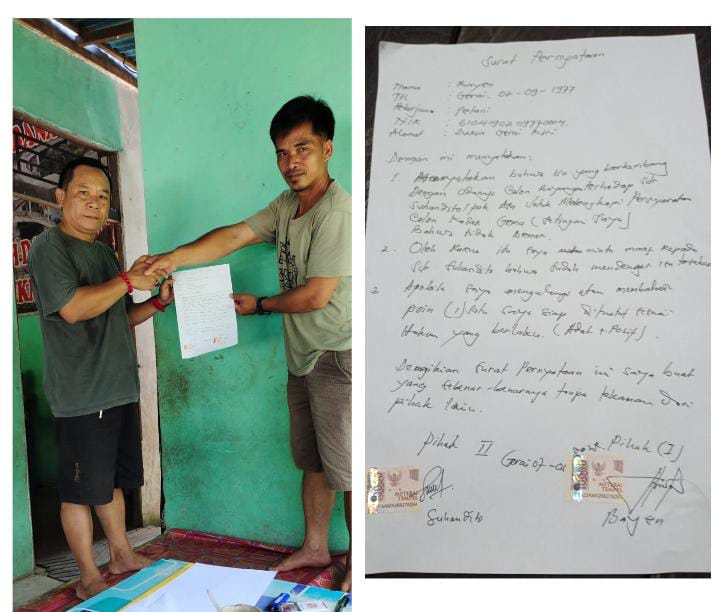 Surat Pernyataan
Nama : Bunyen
TTL : Gerai. 02-09-1977
Pekerjaan : Petani
NIK : 6104190209770004.
Alamat : Dusun Gerai Kiri
Dengan ini menyatakan :
1. Menyatakan bahwa isu yang berkembang
Dengan adanya Calon Bayangan terhadap sdr
Suhandito/pak untuk Melengkapi Persyaratan
Calon Kades Gerai (Settingan Saya)
Bahwa tidak Benar.
2. Oleh Karna itu saya minta maaf kepada
sdr. Suhandito bahwa sudah mendengar isu tersebut
3 Apabila saya mengulangi atau membahas
poin (1) satu saya siap dituntut sesuai
Hukum yang berlaku. (Adat + Positif).
Demikian surat Pernyataan ini saya buat
yang sebenar-benarnya tanpa tekanan dari
pihak lain.
Gerai 07-01
Pihak II
Pihak (I)
10000
METERAI
TEMPEL
10000
METERAI
TEMPEL
Suhandito